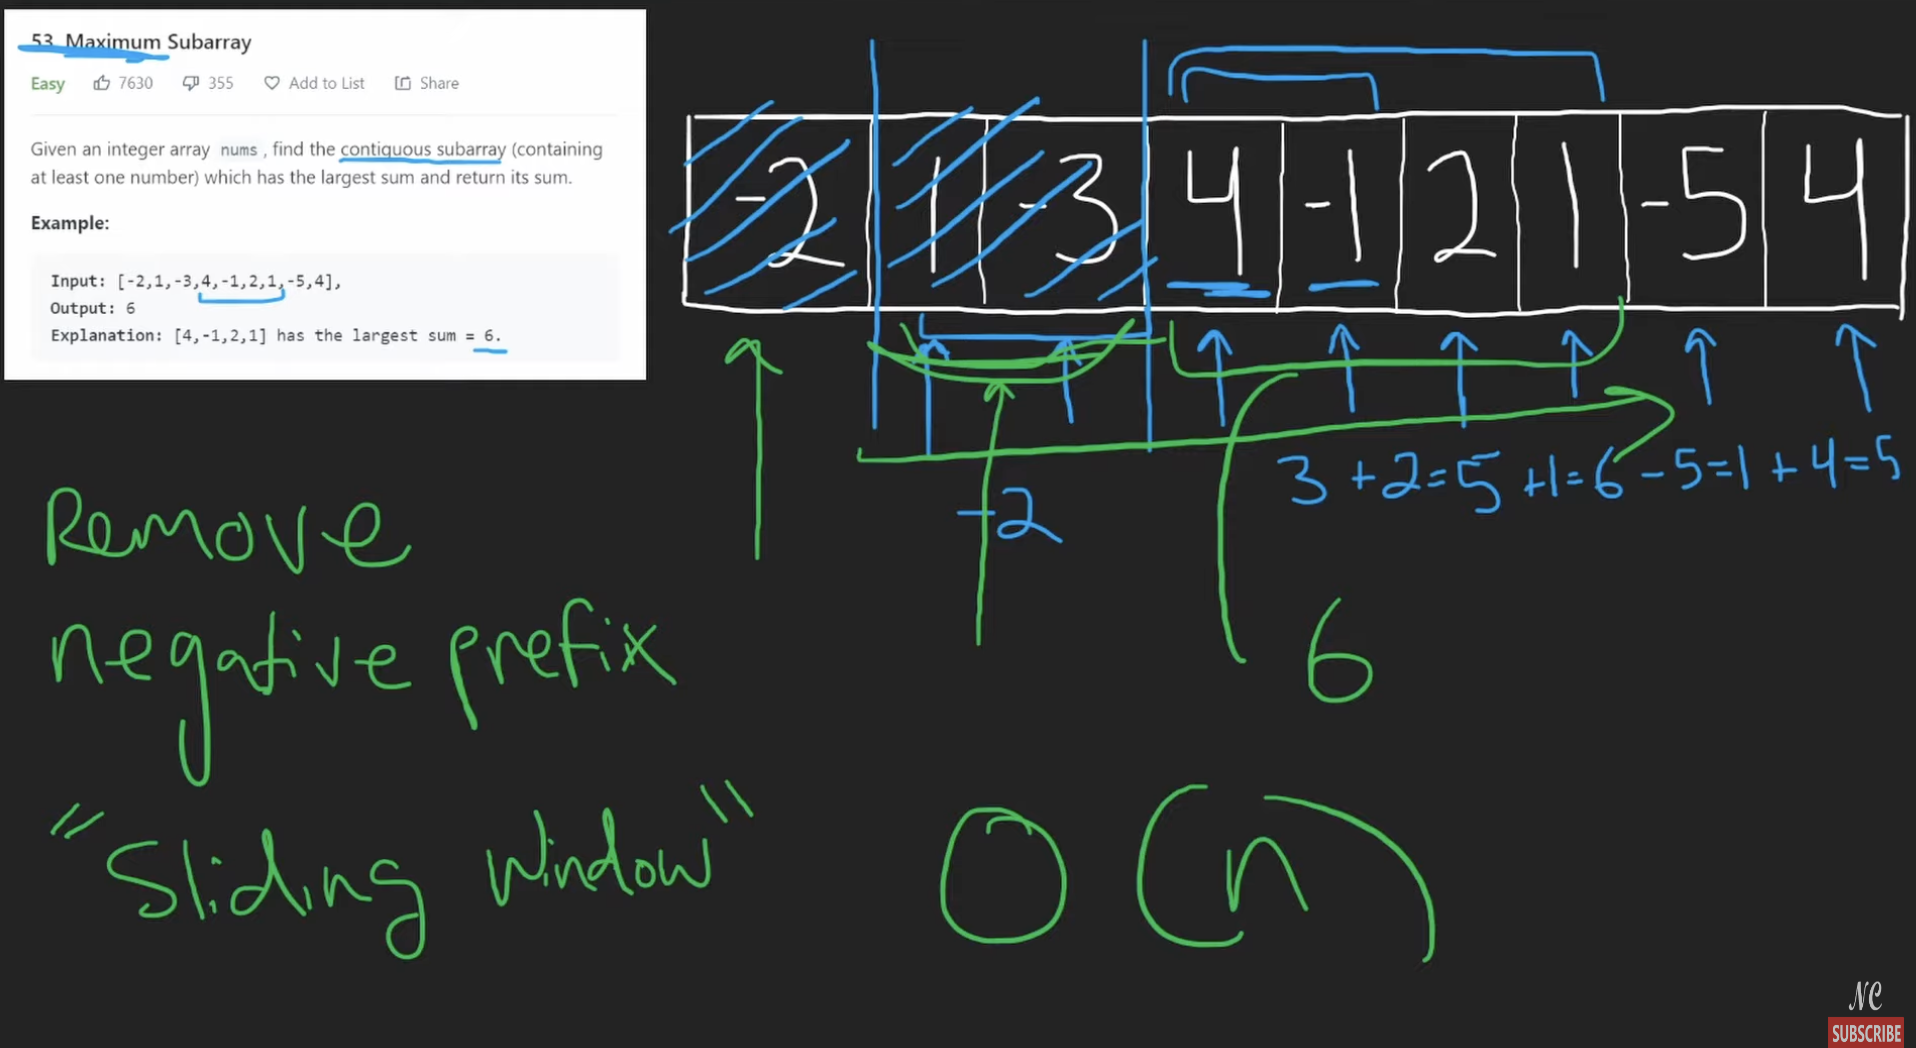 53. Maximum Subarray
Easy 7630 355 Add to List Share
Given an integer array nums , find the contiguous subarray (containing
at least one number) which has the largest sum and return its sum.
Example:
Input: [-2,1,-3,4,-1,2,1,-5,4],
Output: 6
Explanation: [4,-1,2,1] has the largest sum = 6.
-2 1 -3 4 -1 2 1 -5 4
3 +2=5 +1=6 -5=1 +4=5
-2
Remove
negative prefix
6
"Sliding Window"
O(n)
NC
SUBSCRIBE